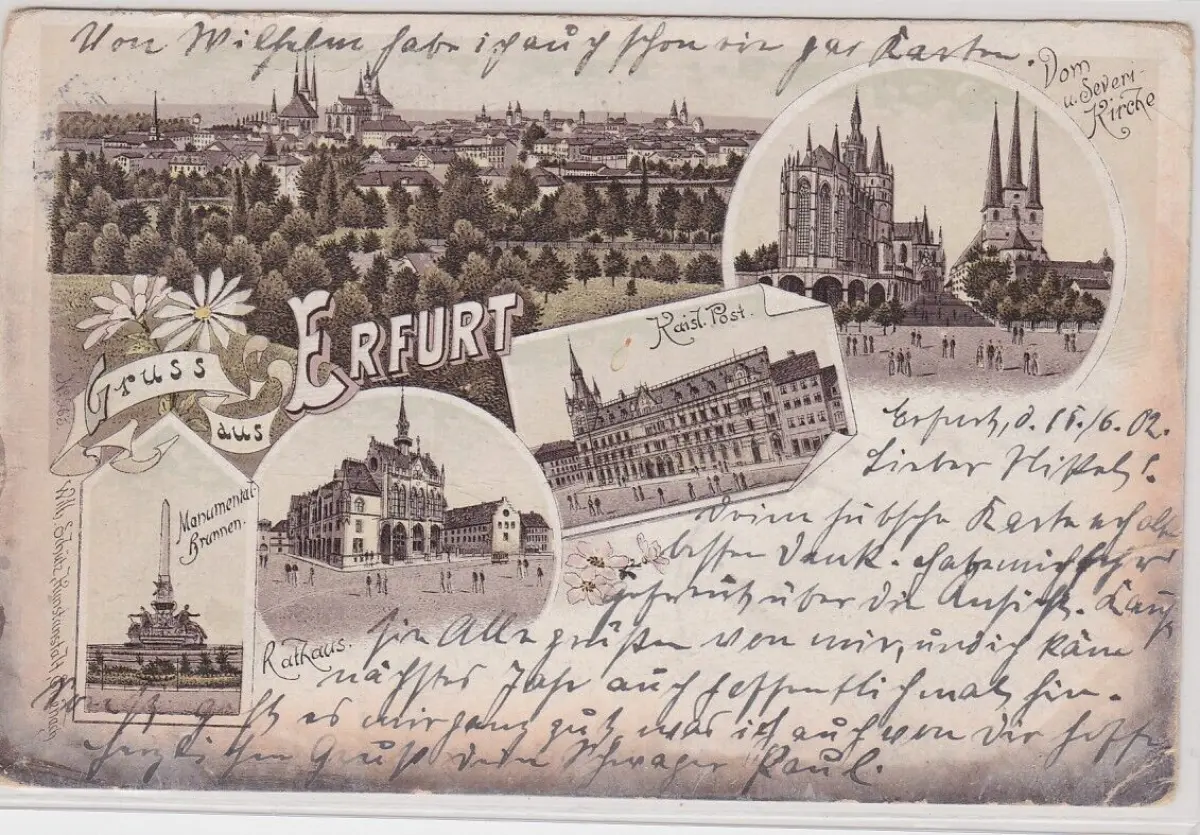 Von Wilhelm habe ich auch schon ein paar Karten.
Dom
u. Severi-
Kirche
Gruss
aus
Erfurt
Kaisl. Post.
Monumental-
Brunnen.
Rathaus.
Erfurt, d. 15./6.02.
Lieber
Deine hübsche Karte erhalten
besten Dank. Habe mich sehr
gefreut über die Ansicht. Kannst
sie Alle grüßen von mir, und ich käme
nächstes Jahr auch hoffentlich mal hin.
geht es mir ganz gut, was ich auch von Dir hoffe
herzlichen Gruß dein Schwager Paul.
Kunstanstalt